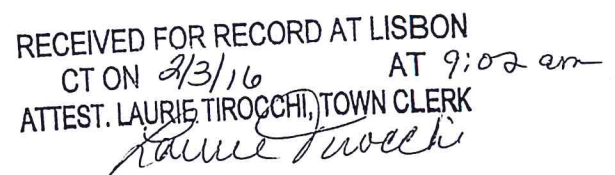 RECEIVED FOR RECORD AT LISBON
CT ON 2/3/16 AT 9:02 am
ATTEST. LAURIE TIROCCHI, TOWN CLERK
Laurie Tirocchi